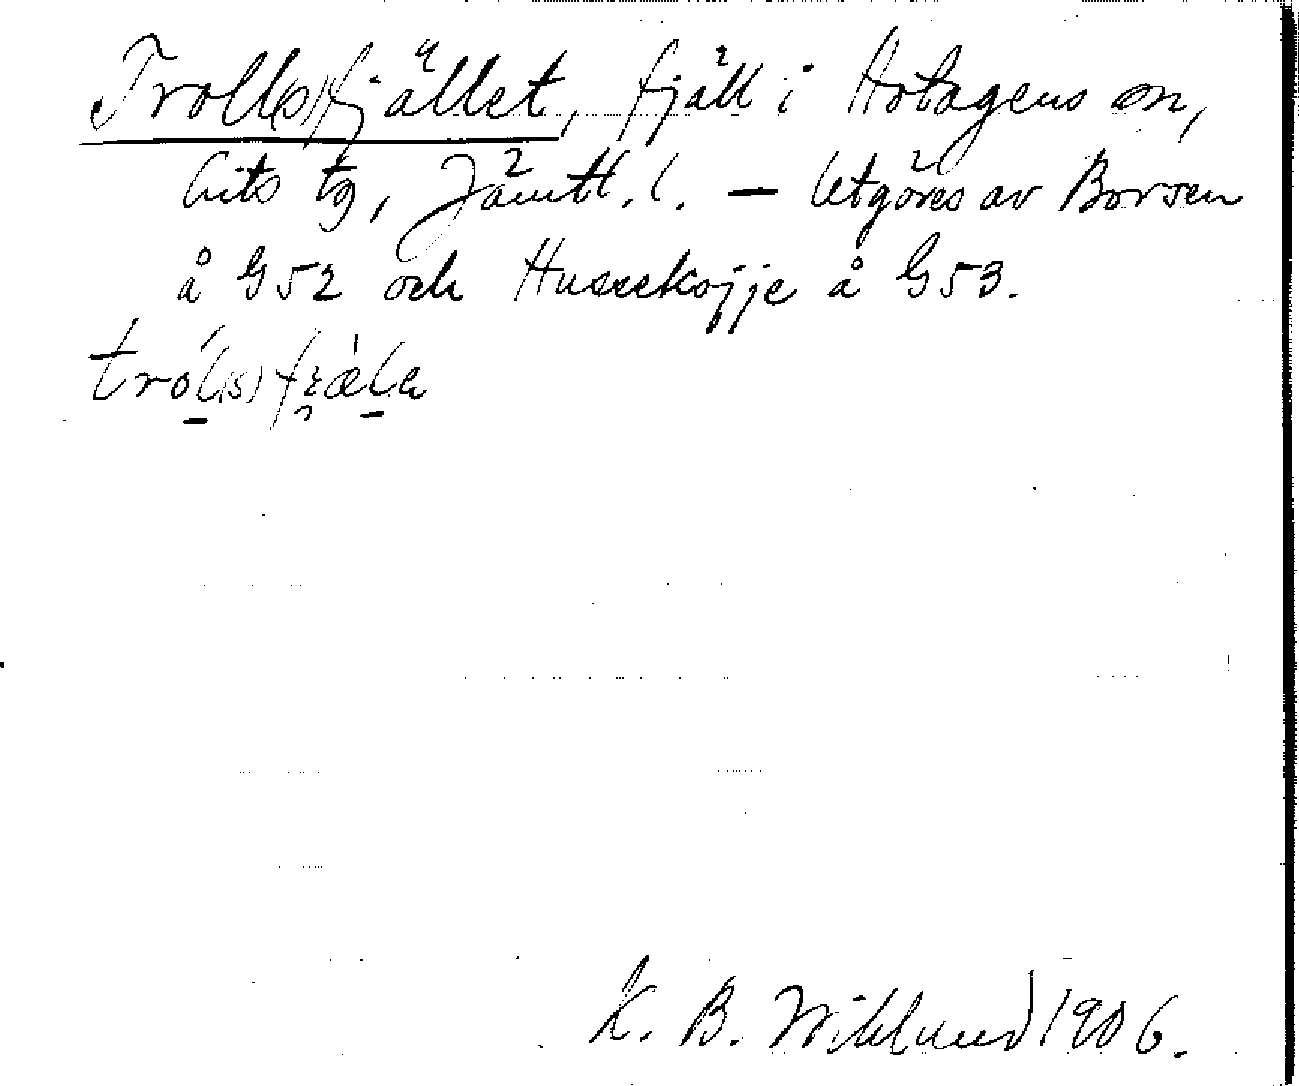 Troll(s)fjället, fjäll i Hotagens sn,
Lits tg, Jämtl. l. — Utgöres av Borsen
å G52 och Huseekojje å G53.
K. B. Wiklund 1906.